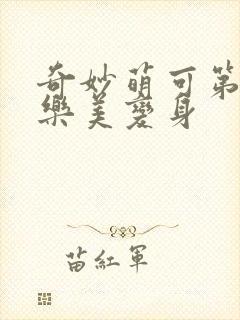 奇妙萌可第
樂美變身
苗紅軍